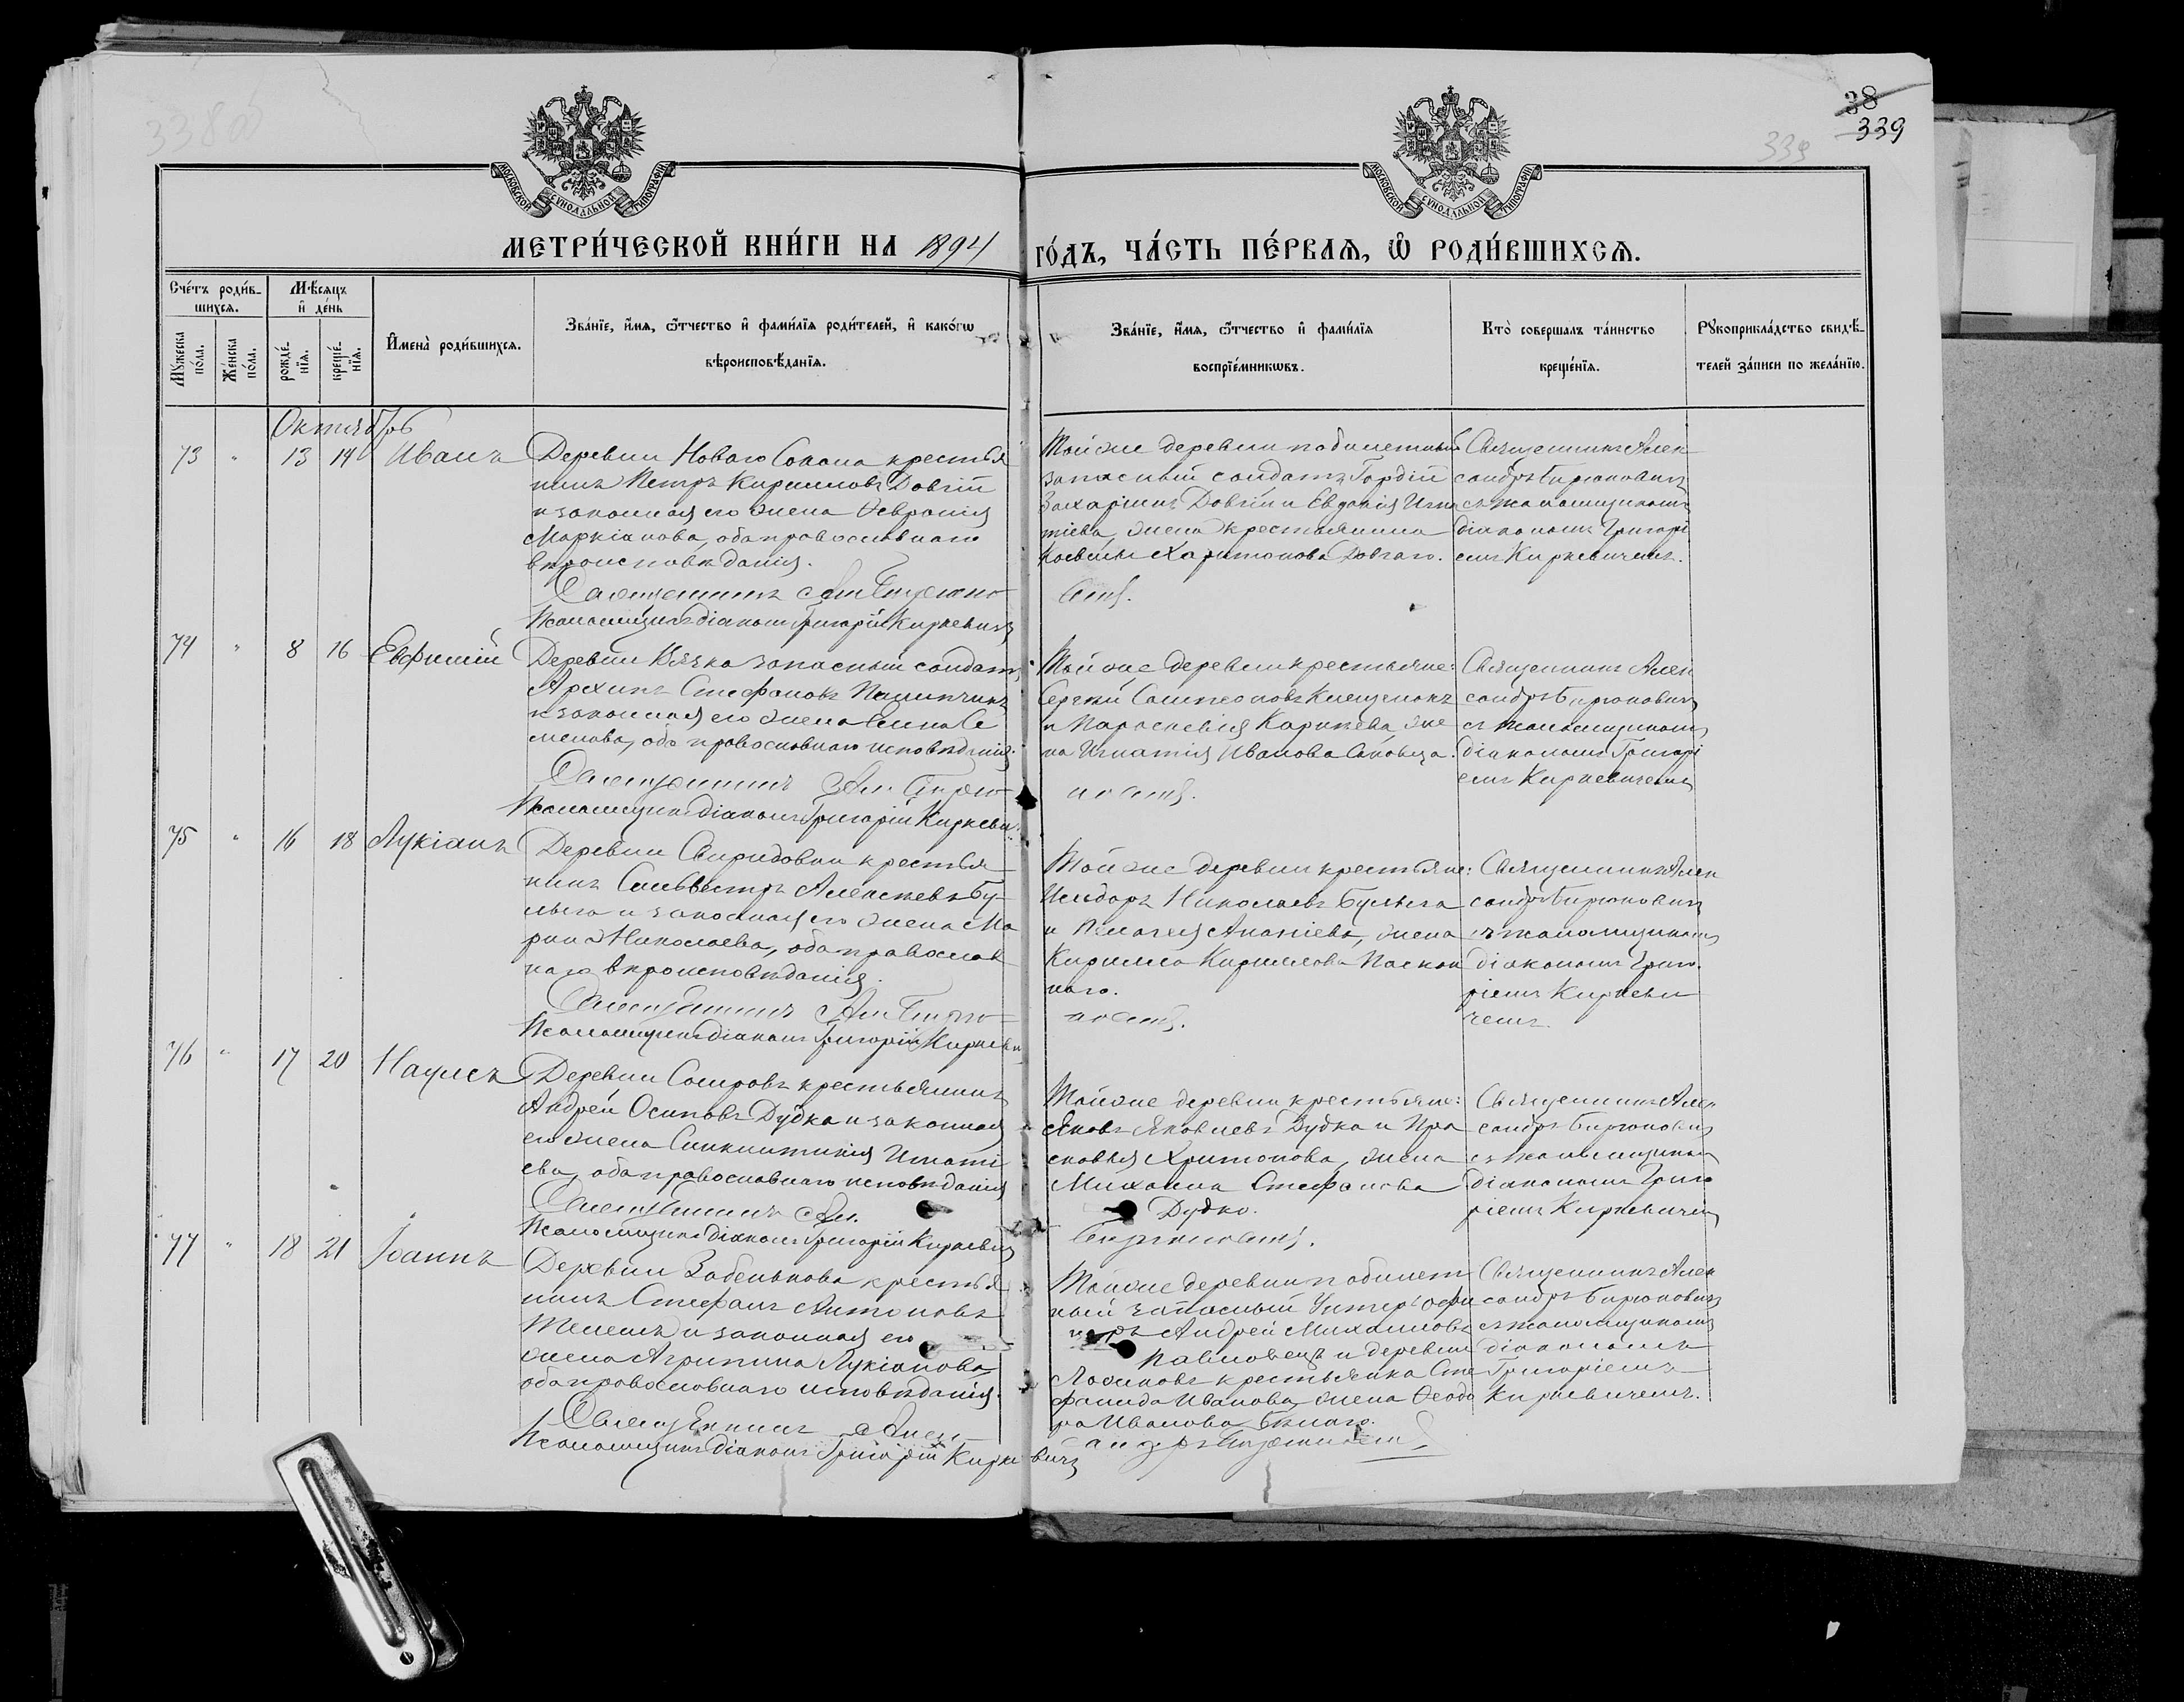 338об
38
339
339
МОСКОВСКОЙ СѴНОДАЛЬНОЙ ТИПОГРАФІИ
МОСКОВСКОЙ СѴНОДАЛЬНОЙ ТИПОГРАФІИ
МЕТРИ́ЧЕСКОЙ КНИ́ГИ НА 1894 ГО́ДЪ, ЧА́СТЬ ПЕ́РВАЯ, Ѿ РОДИ́ВШИХСЯ.
Сче́тъ роди́в-
шихся.
Мѣ́сяцъ
и҆ де́нь
Мꙋ́жеска
по́ла.
Же́нска
по́ла.
рожде́-
нїя.
креще́-
нїя.
И҆мена̀ роди́вшихся.
Зва́нїе, и҆́мя, ѻ҆́тчество и҆ фами́лїя роди́телей, и҆ како́гѡ
вѣроисповѣ́данїя.
Зва́нїе, и҆́мя, ѻ҆́тчество и҆ фами́лїя
воспрїе́мникѡвъ.
Кто̀ соверша́лъ та́инство
креще́нїя.
Рꙋкоприкла́дство свидѣ́-
телей за́писи по жела́нїю.
Октябрь
73 " 13 14 Иванъ
Деревни Новаго Сокола крестья
нинъ Петръ Кирилловъ Довгій
и законная его жена Февронія
Маркіанова, оба православнаго
вѣроисповѣданія.
Священникъ Ал. Бирюко
Псаломщикъ діаконъ Григорій Киркевичъ
Той же деревни по билетный
запасный солдатъ Гордій
Захаріинъ Довгій и Евдокія Игна
тіева, жена крестьянина
Харитонова Довгаго.
Священникъ Алек
сандръ Бирюковичъ
съ псаломщикомъ
діакономъ Григорі
емъ Киркевичемъ.
74 " 8 16 Евфимій
Деревни запасный солдатъ
Архипъ Стефановъ
и законная его жена Елена Се
менова, оба православнаго исповѣданія.
Священникъ Ал. Бирю
Псаломщикъ діаконъ Григорій Киркеви
Той же деревни крестьяне:
Сергѣй Самсоновъ
и Параскевія Карпѣева, же
на Игнатія Иванова
Священникъ Алек
сандръ Бирюковичъ
съ псаломщикомъ
діакономъ Григорі
емъ Киркевичемъ
75 " 16 18 Лукіанъ
Деревни Свиридовки крестья
нинъ Сильвестръ Алексѣевъ Бу-
льга и законная его жена Ма
рина Николаева, оба православ
наго вѣроисповѣданія.
Священникъ Ал. Бирю
Псаломщикъ діаконъ Григорій Киркеви
Той же деревни крестьяне:
Исидоръ Николаевъ Бульга
и Пелагея Ананіева, жена
Кирилла Кириллова
наго.
Священникъ Алек
сандръ Бирюковичъ
съ псаломщикомъ
діакономъ Григо-
ріемъ Киркеви
чемъ.
76 " 17 20 Наумъ
Деревни крестьянинъ
Андрей Осиповъ Дудка и законная
его жена Синклитикія Игнаті
ева, оба православнаго исповѣданія
Священникъ Ал.
Псаломщикъ діаконъ Григорій Киркевичъ
Той же деревни крестьяне:
Яковъ Яковлевъ Дудка и Пра
сковья Хритонова, жена
Михаила Стефанова
Дудко.
Священникъ Алек
сандръ Бирюковичъ
съ псаломщикомъ
діакономъ Григо
ріемъ Киркевичемъ
77 " 18 21 Іоаннъ
Деревни Забенькова крестья
нинъ Стефанъ Антоновъ
и законная его
жена Агрипина Лукіанова,
оба православнаго исповѣданія.
Священникъ Алек
Псаломщикъ діаконъ Григорій Киркевичъ
Той же деревни по билет
ный запасный Унтеръ офи
церъ Андрей Михаиловъ
Павловецъ и деревни
крестьянка Сте
фанида Иванова, жена Ѳеодо
ра Иванова Бѣлаго.
Священникъ Алек
сандръ Бирюковичъ
съ псаломщикомъ
діакономъ
Григоріемъ
Киркевичемъ.